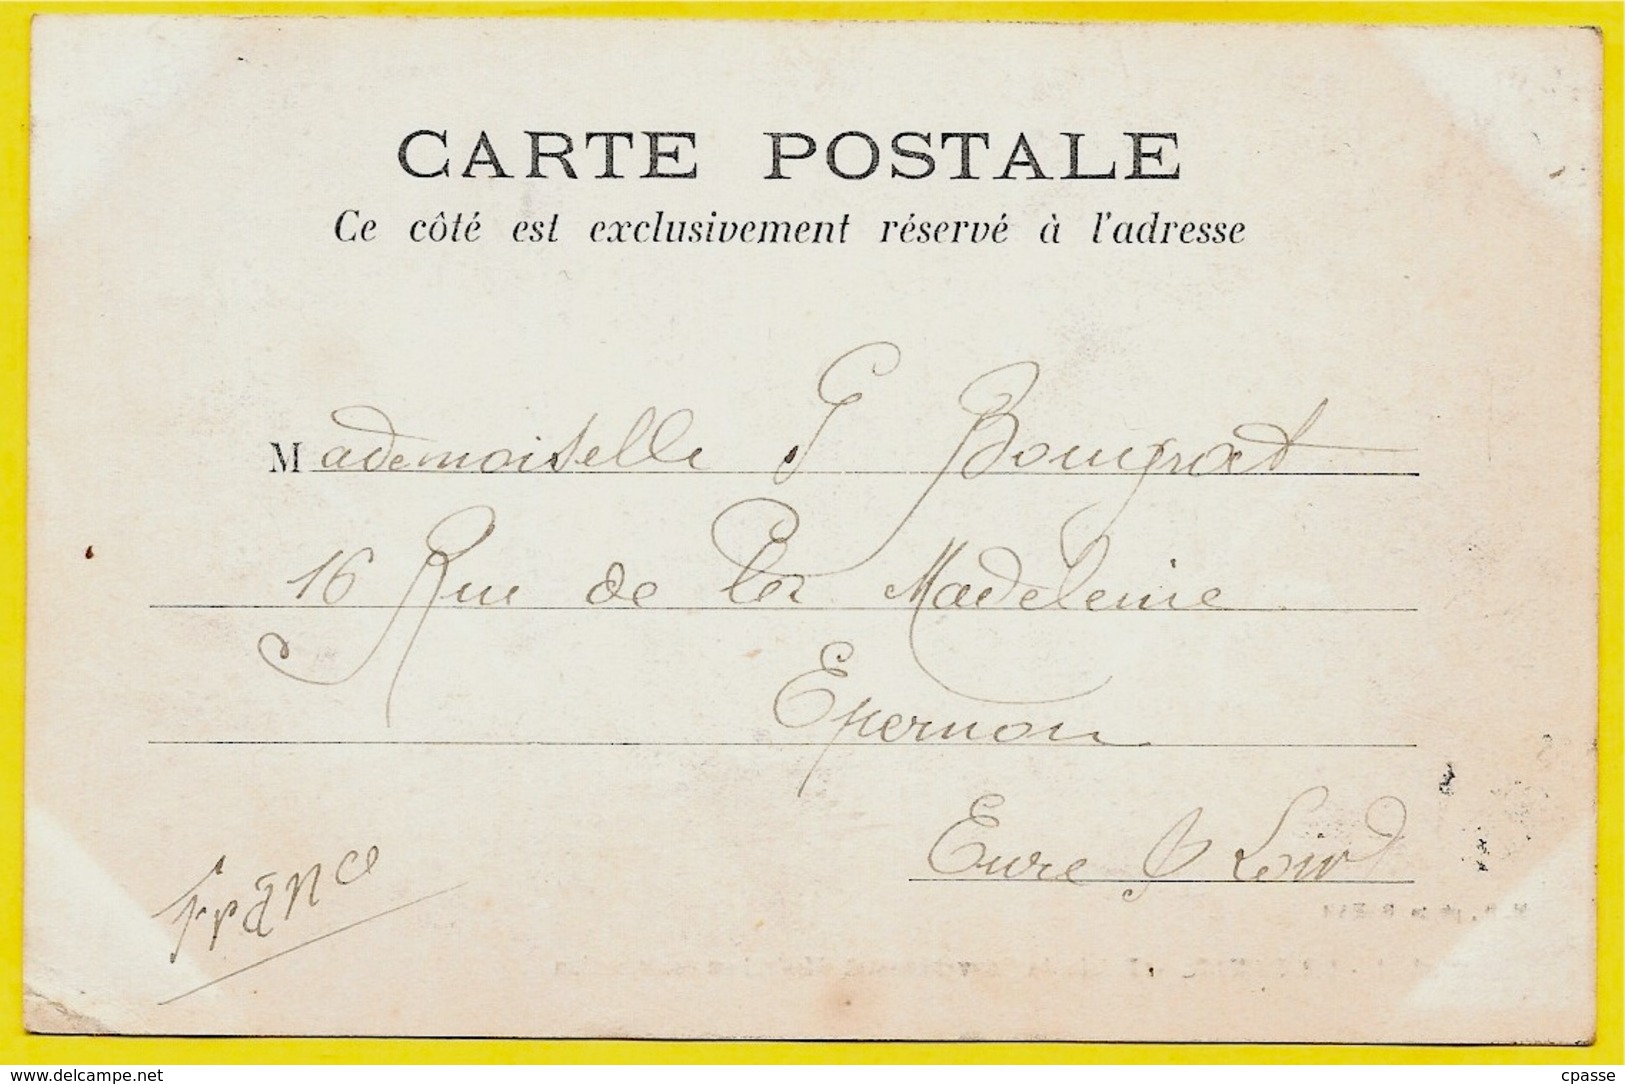 CARTE POSTALE
Ce côté est exclusivement réservé à l'adresse
Mademoiselle G Bougrat
16 Rue de la Madeleine
Epernon
Eure & Loir
France
delcampe.net
cpasse